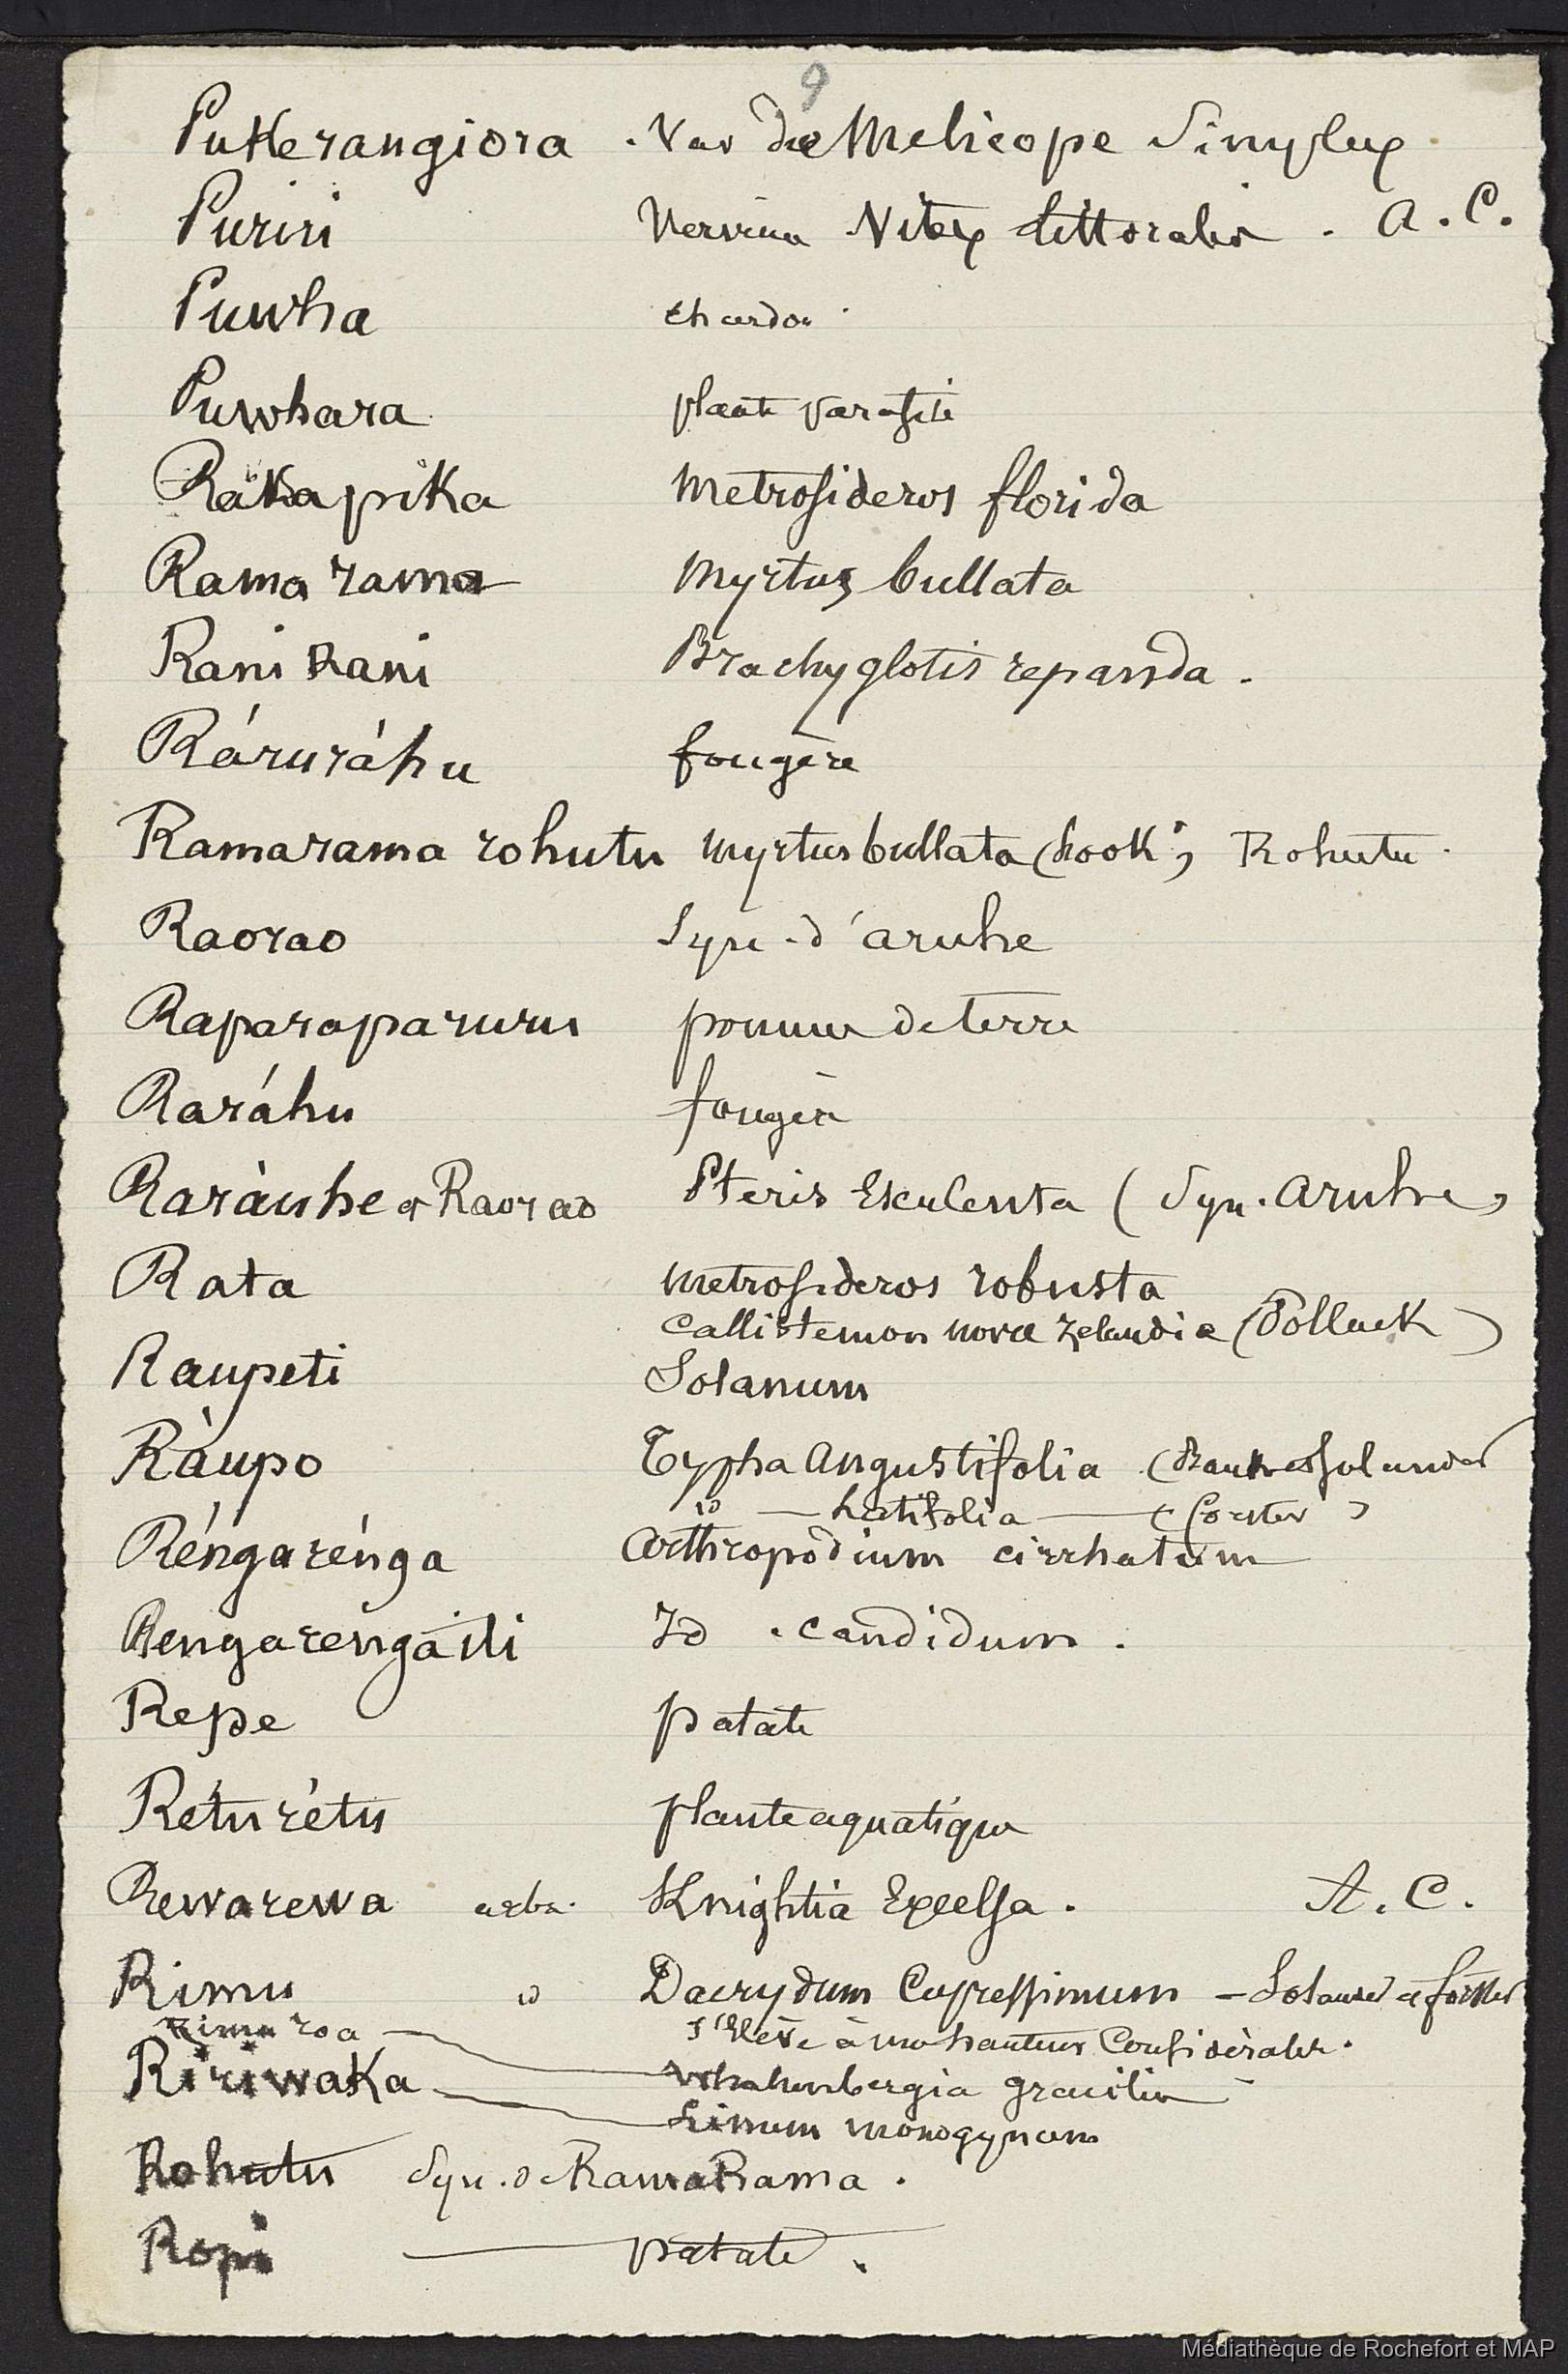 9
Pukerangiora . Var de Melicope Simplex.
Puriri Vitex littoralis . A. C.
Puwha chardon
Puwhara plante parasite
Rakapika Metrosideros florida
Rama rama Myrtus bullata
Rani Rani Brachyglotis repanda .
Ráruráhu fougère
Ramarama rohutu Myrtus bullata (hook) Rohutu
Raorao Syn. d'aruhe
Raparaparuru pomme de terre
Raráhu fougère
Raràuhe et Raorao Pteris Esculenta (Syn. aruhe)
Rata Metrosideros robusta
Callistemon nova zelandia (Pollack)
Raupeti Solanum
Ràupo Typha angustifolia (Banks et Solander
id — Latifolia — (Forster)
Réngarénga Arthropodium cirrhatum
Rengarengáiti Id . candidum .
Repe patate
Réturétu plante aquatique
Rewarewa arbr. Knightia Excelsa . A. C.
Rimu id Dacrydum Cupressinum – Solander et forster
Rimu roa — s'élève à une hauteur Considérable.
Ririwaka — Whalenbergia gracilis
Linum monogynum
Rohutu Syn. de RamaRama .
Ropi — patate .
Médiathèque de Rochefort et MAP